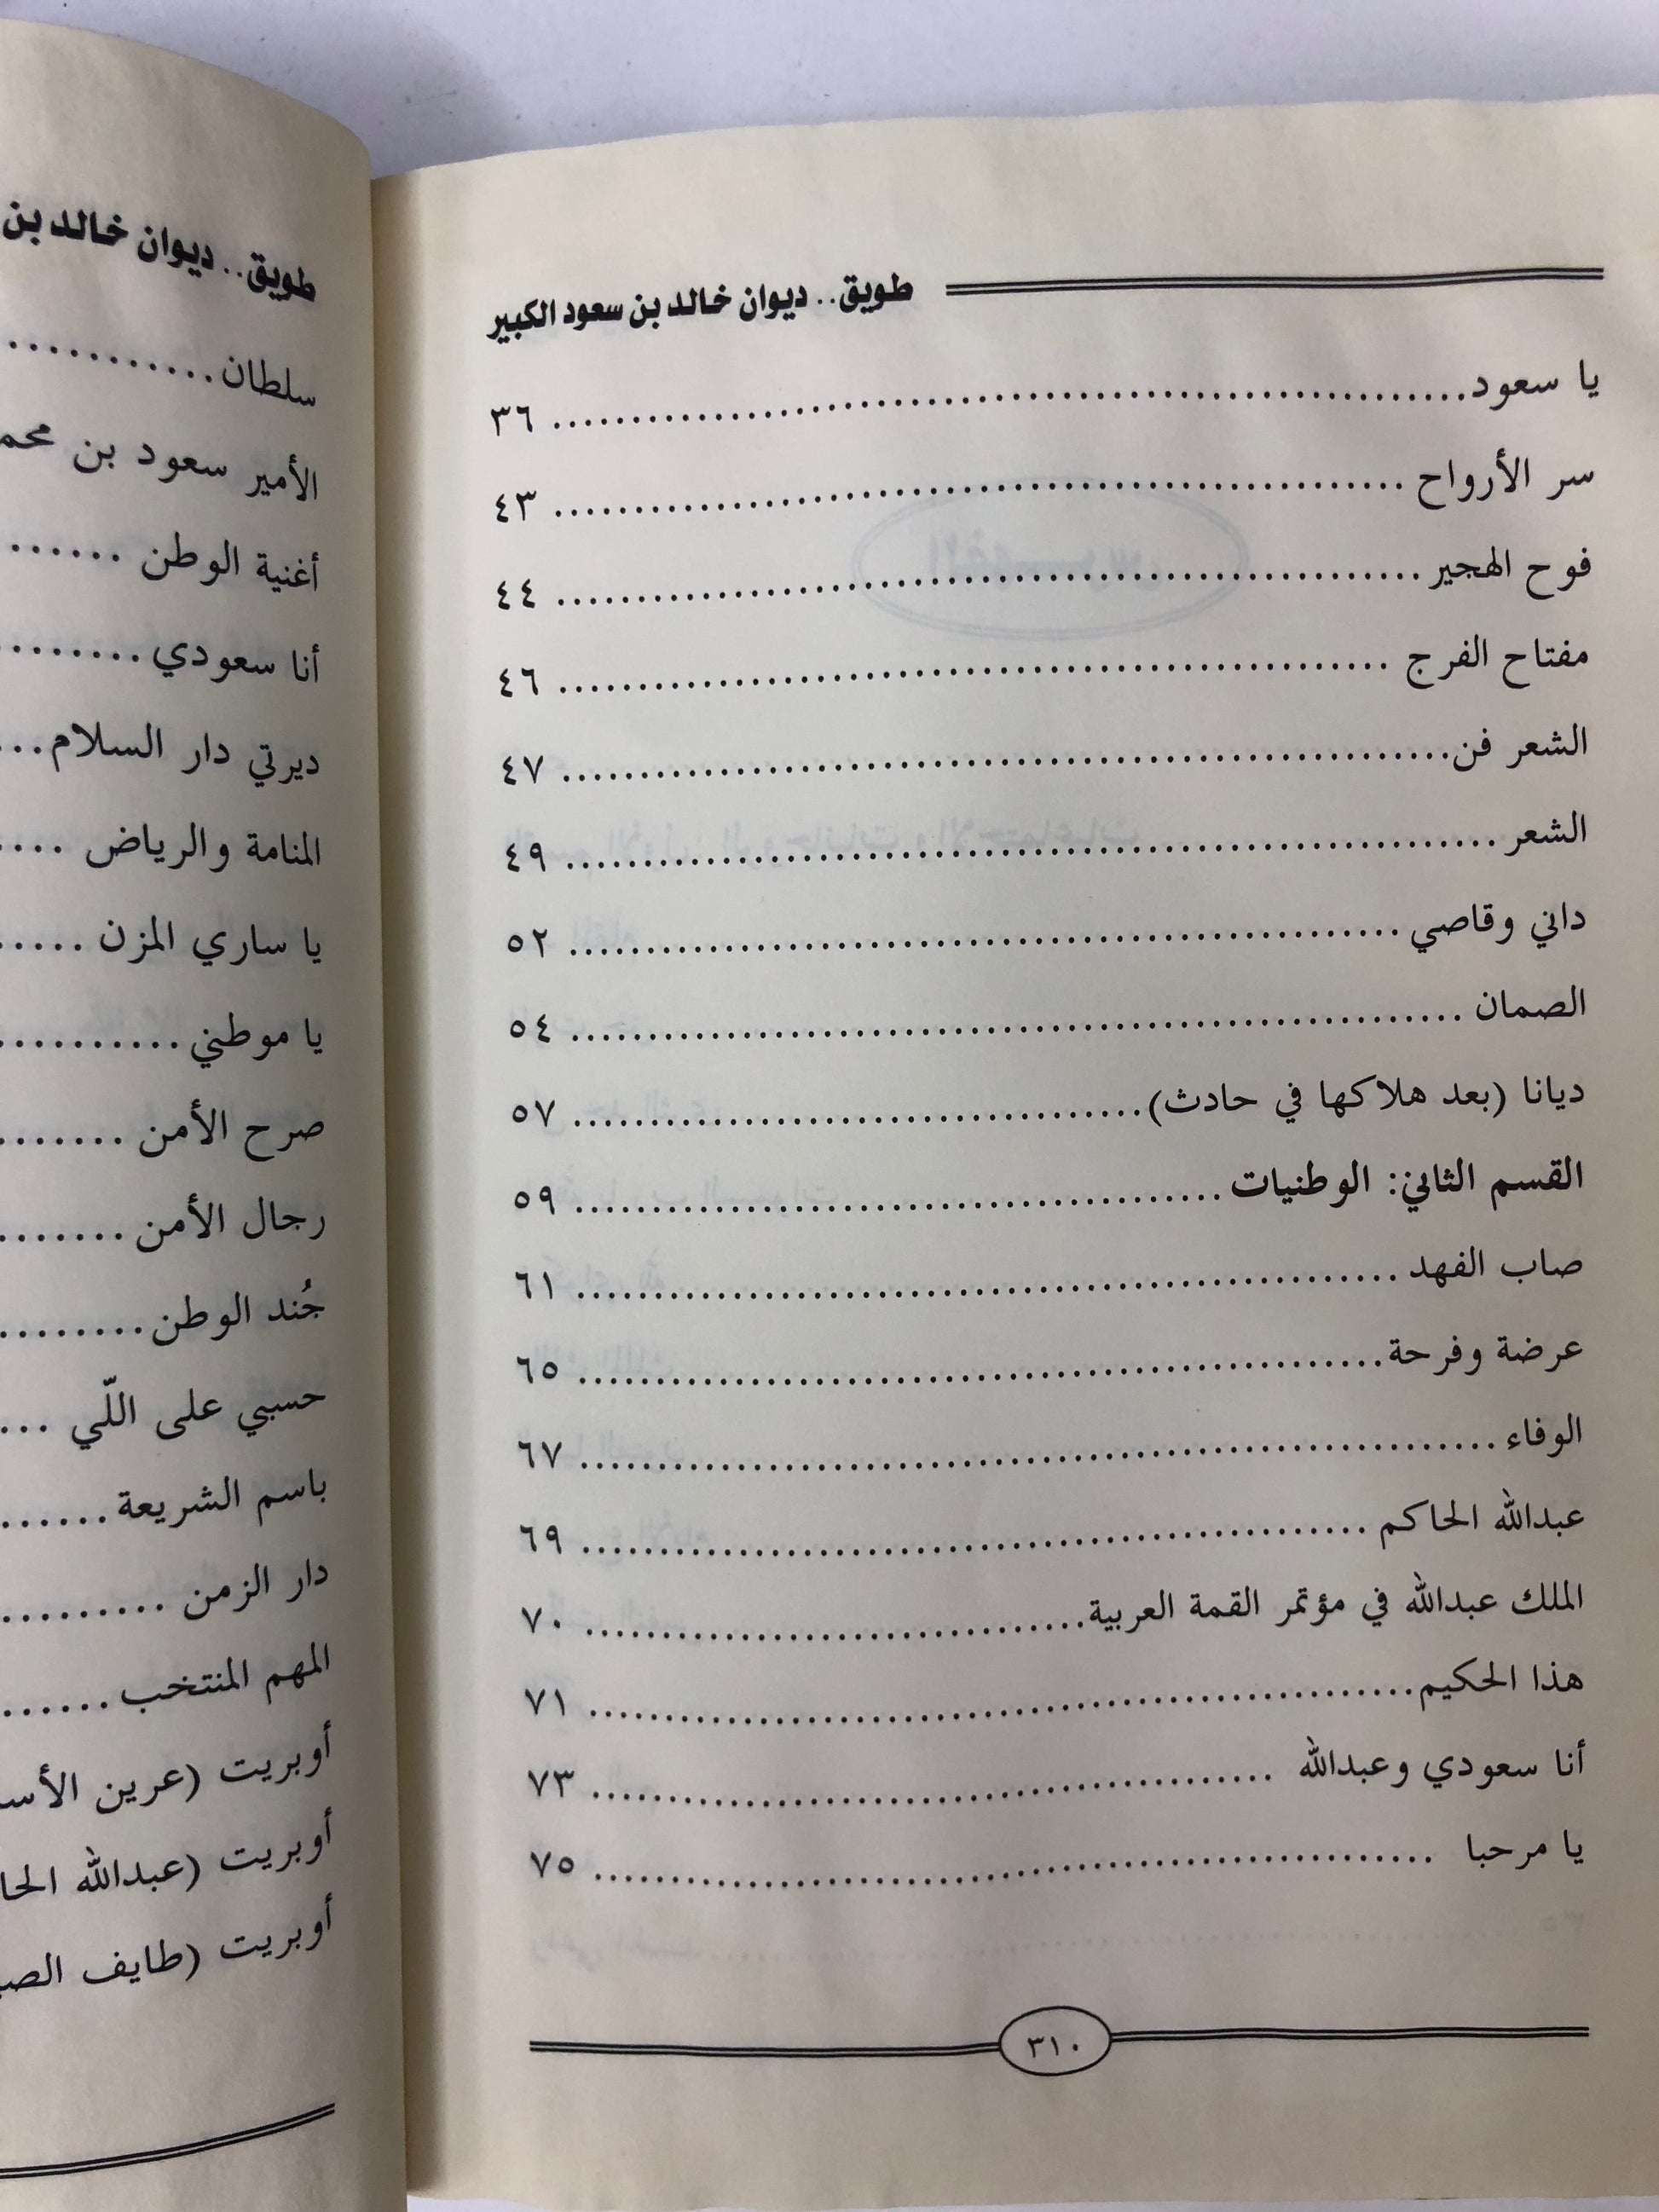 طويق.. ديوان خالد بن سعود الكبير
يا سعود ........ ٣٦
سر الأرواح ........ ٤٣
فوح الهجير ........ ٤٤
مفتاح الفرج ........ ٤٦
الشعر فن ........ ٤٧
الشعر ........ ٤٩
داني وقاصي ........ ٥٢
الصمان ........ ٥٤
ديانا (بعد هلاكها في حادث) ........ ٥٧
القسم الثاني: الوطنيات ........ ٥٩
صاب الفهد ........ ٦١
عرضة وفرحة ........ ٦٥
الوفاء ........ ٦٧
عبدالله الحاكم ........ ٦٩
الملك عبدالله في مؤتمر القمة العربية ........ ٧٠
هذا الحكيم ........ ٧١
أنا سعودي وعبدالله ........ ٧٣
يا مرحبا ........ ٧٥
٣١٠
طويق.. ديوان خالد بن
سلطان ........
الأمير سعود بن
أغنية الوطن ......
أنا سعودي ........
ديرتي دار السلام ...
المنامة والرياض ....
يا ساري المزن .....
يا موطني ..........
صرح الأمن .......
رجال الأمن .......
جُند الوطن ........
حسبي على اللّي ...
باسم الشريعة ......
دار الزمن .........
المهم المنتخب ......
أوبريت (عرين
أوبريت (عبدالله
أوبريت (طايف